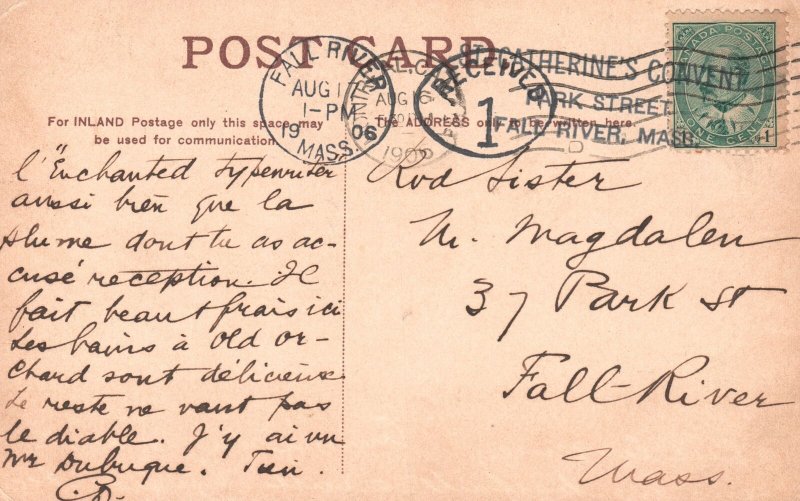 POST CARD
CANADA POSTAGE
ONE CENT
1
FALL RIVER
AUG 1
1-PM
19 06
MASS.
MONTREAL
AUG
1906
RECEIVED
1
ST. CATHERINE'S CONVENT,
PARK STREET
FALL RIVER, MASS.
For INLAND Postage only this space may
be used for communication.
The ADDRESS only to be written here
l'"Enchanted typewriter
aussi bien que la
plume dont tu as ac-
cusé reception. Il
fait beau & frais ici
Les bains à Old Or-
chard sont délicieux
Le reste ne vaut pas
le diable. J'y ai vu
Mr Dubuque. Tien.
Rvd Sister
M. Magdalen
37 Park St
Fall-River
Mass.